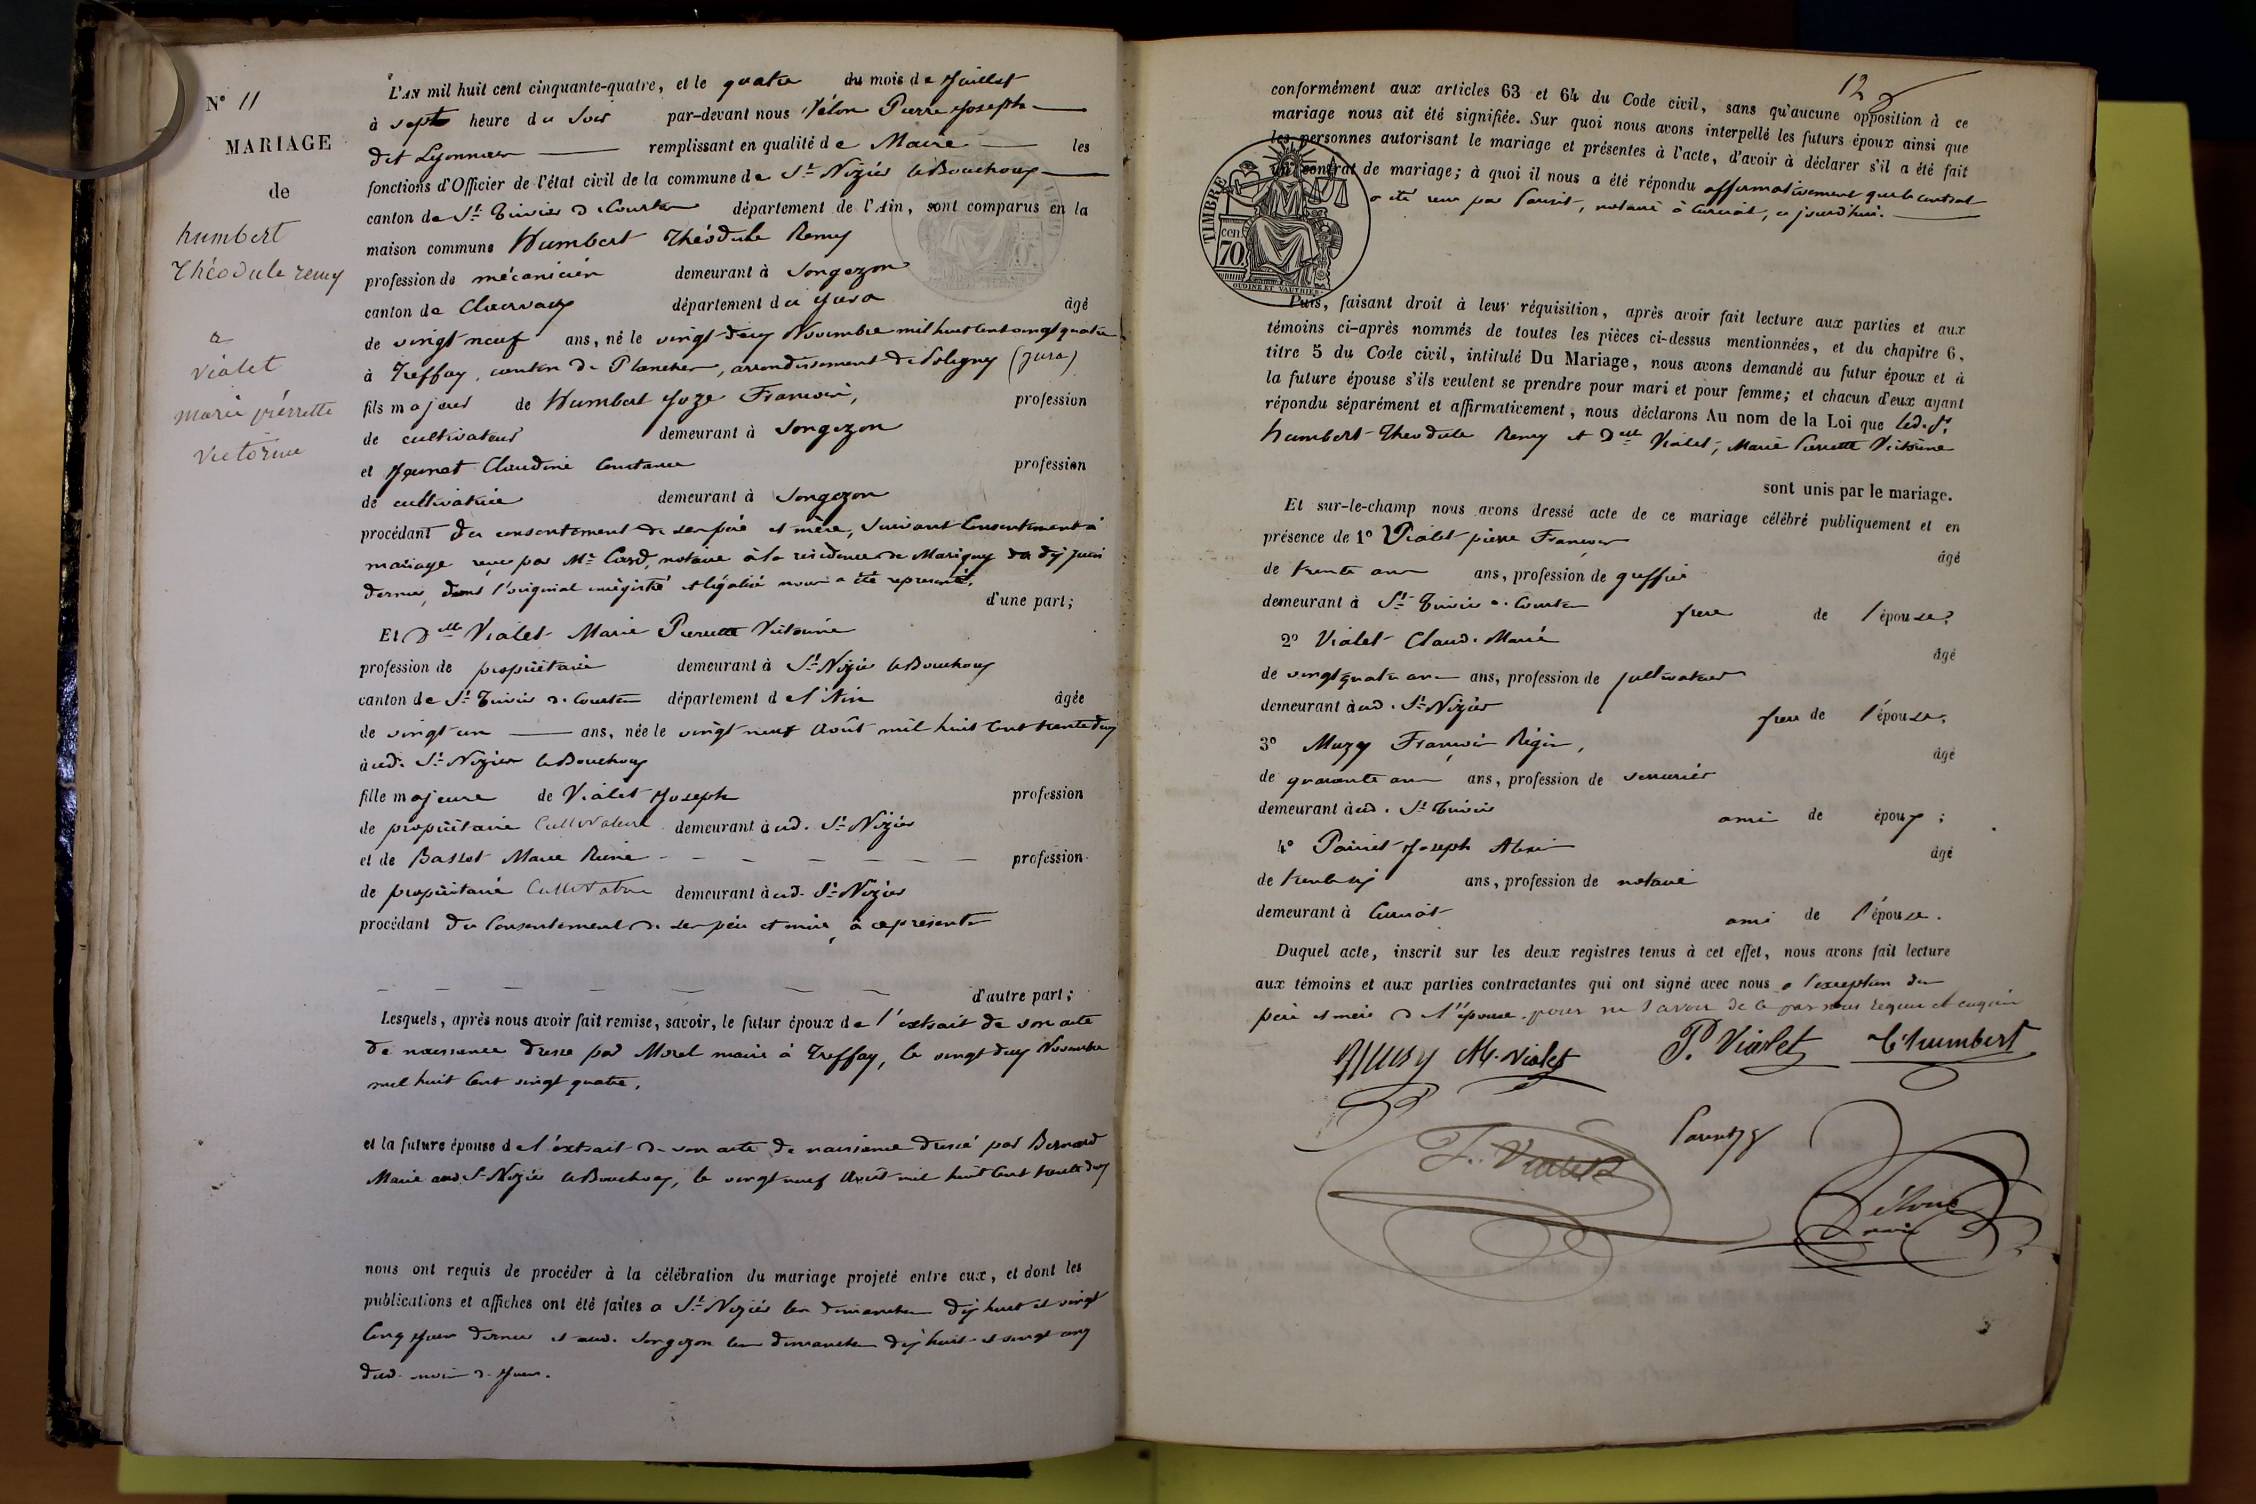 N° 11
MARIAGE
de
humbert
Théodule remy
a
vialet
marie pierrette
victorine
L'AN mil huit cent cinquante-quatre, et le quatre du mois de Juillet
à sept heure du Soir par-devant nous Vélon Pierre Joseph
dit Lyonnais remplissant en qualité de Maire les
fonctions d'Officier de l'état civil de la commune de St Nizier le Bouchoux
canton de St Trivier de Courtes département de l'Ain, sont comparus en la
maison commune Humbert Théodule Remy
profession de mécanicien demeurant à Songezon
canton de Clairvaux département du Jura âgé
de vingt neuf ans, né le vingt-deux Novembre mil huit cent vingt quatre
à Treffay, canton de Planches, arrondissement de Poligny (Jura)
fils majeur de Humbert Joze François, profession
de cultivateur demeurant à Songezon
et Jeunet Claudine Constance profession
de cultivatrice demeurant à Songezon
procédant du consentement de ses père et mère, suivant Consentement à
mariage reçu par Me Card, notaire à la résidence de Marigny du dix Juin
dernier, dont l'original enregistré et légalisé nous a été représenté.
d'une part;
Et Dlle Vialet Marie Pierrette Victorine
profession de propriétaire demeurant à St Nizier le Bouchoux
canton de St Trivier de Courtes département de l'Ain âgée
de vingt un ans, née le vingt neuf Août mil huit cent trente deux
à ud. St Nizier le Bouchoux
fille majeure de Vialet Joseph profession
de propriétaire Cultivateur demeurant à ud. St Nizier
et de Bassot Marie Reine profession
de propriétaire Cultivatrice demeurant à ud. St Nizier
procédant du Consentement de ses père et mère, à ce présents
d'autre part;
Lesquels, après nous avoir fait remise, savoir, le futur époux de l'extrait de son acte
de naissance dressé par Morel maire à Treffay, le vingt deux Novembre
mil huit cent vingt quatre,
et la future épouse de l'extrait de son acte de naissance dressé par Bernard
Maire aud. St Nizier le Bouchoux, le vingt neuf Août mil huit cent trente deux
nous ont requis de procéder à la célébration du mariage projeté entre eux, et dont les
publications et affiches ont été faites à St Nizier les dimanches dix huit et vingt
cinq Juin dernier et aud. Songezon les dimanches dix huit et vingt cinq
dud. mois de Juin.
12
conformément aux articles 63 et 64 du Code civil, sans qu'aucune opposition à ce
mariage nous ait été signifiée. Sur quoi nous avons interpellé les futurs époux ainsi que
les personnes autorisant le mariage et présentes à l'acte, d'avoir à déclarer s'il a été fait
un contrat de mariage; à quoi il nous a été répondu affirmativement que le contrat
a été reçu par , notaire à Curciat, ce jourd'hui.
TIMBRE
70
cen.
OUDINE ET VAUTHIER
Puis, faisant droit à leur réquisition, après avoir fait lecture aux parties et aux
témoins ci-après nommés de toutes les pièces ci-dessus mentionnées, et du chapitre 6,
titre 5 du Code civil, intitulé Du Mariage, nous avons demandé au futur époux et à
la future épouse s'ils veulent se prendre pour mari et pour femme; et chacun d'eux ayant
répondu séparément et affirmativement, nous déclarons Au nom de la Loi que led. Sr
humbert Theodule Remy et Dlle Vialet, Marie Pierrette Victorine
sont unis par le mariage.
Et sur-le-champ nous avons dressé acte de ce mariage célébré publiquement et en
présence de 1° Vialet pierre François
âgé
de trente ans ans, profession de greffier
demeurant à St Trivier de Courtes frere de l'épouse;
2° Vialet Claude Marie
âgé
de vingt quatre ans ans, profession de cultivateur
demeurant à ud. St Nizier frere de l'épouse;
3° Muzy François Régis,
âgé
de quarante ans ans, profession de serrurier
demeurant à ud. St Trivier ami de époux;
4° Joseph Alexis
âgé
de trente six ans, profession de notaire
demeurant à Curciat ami de l'épouse.
Duquel acte, inscrit sur les deux registres tenus à cet effet, nous avons fait lecture
aux témoins et aux parties contractantes qui ont signé avec nous a l'exception des
père et mère de l'épouse. pour ne savoir de ce par nous requis et enquis
Musy M. vialet P. Vialet T humbert
F. Vialet
Vélon
maire